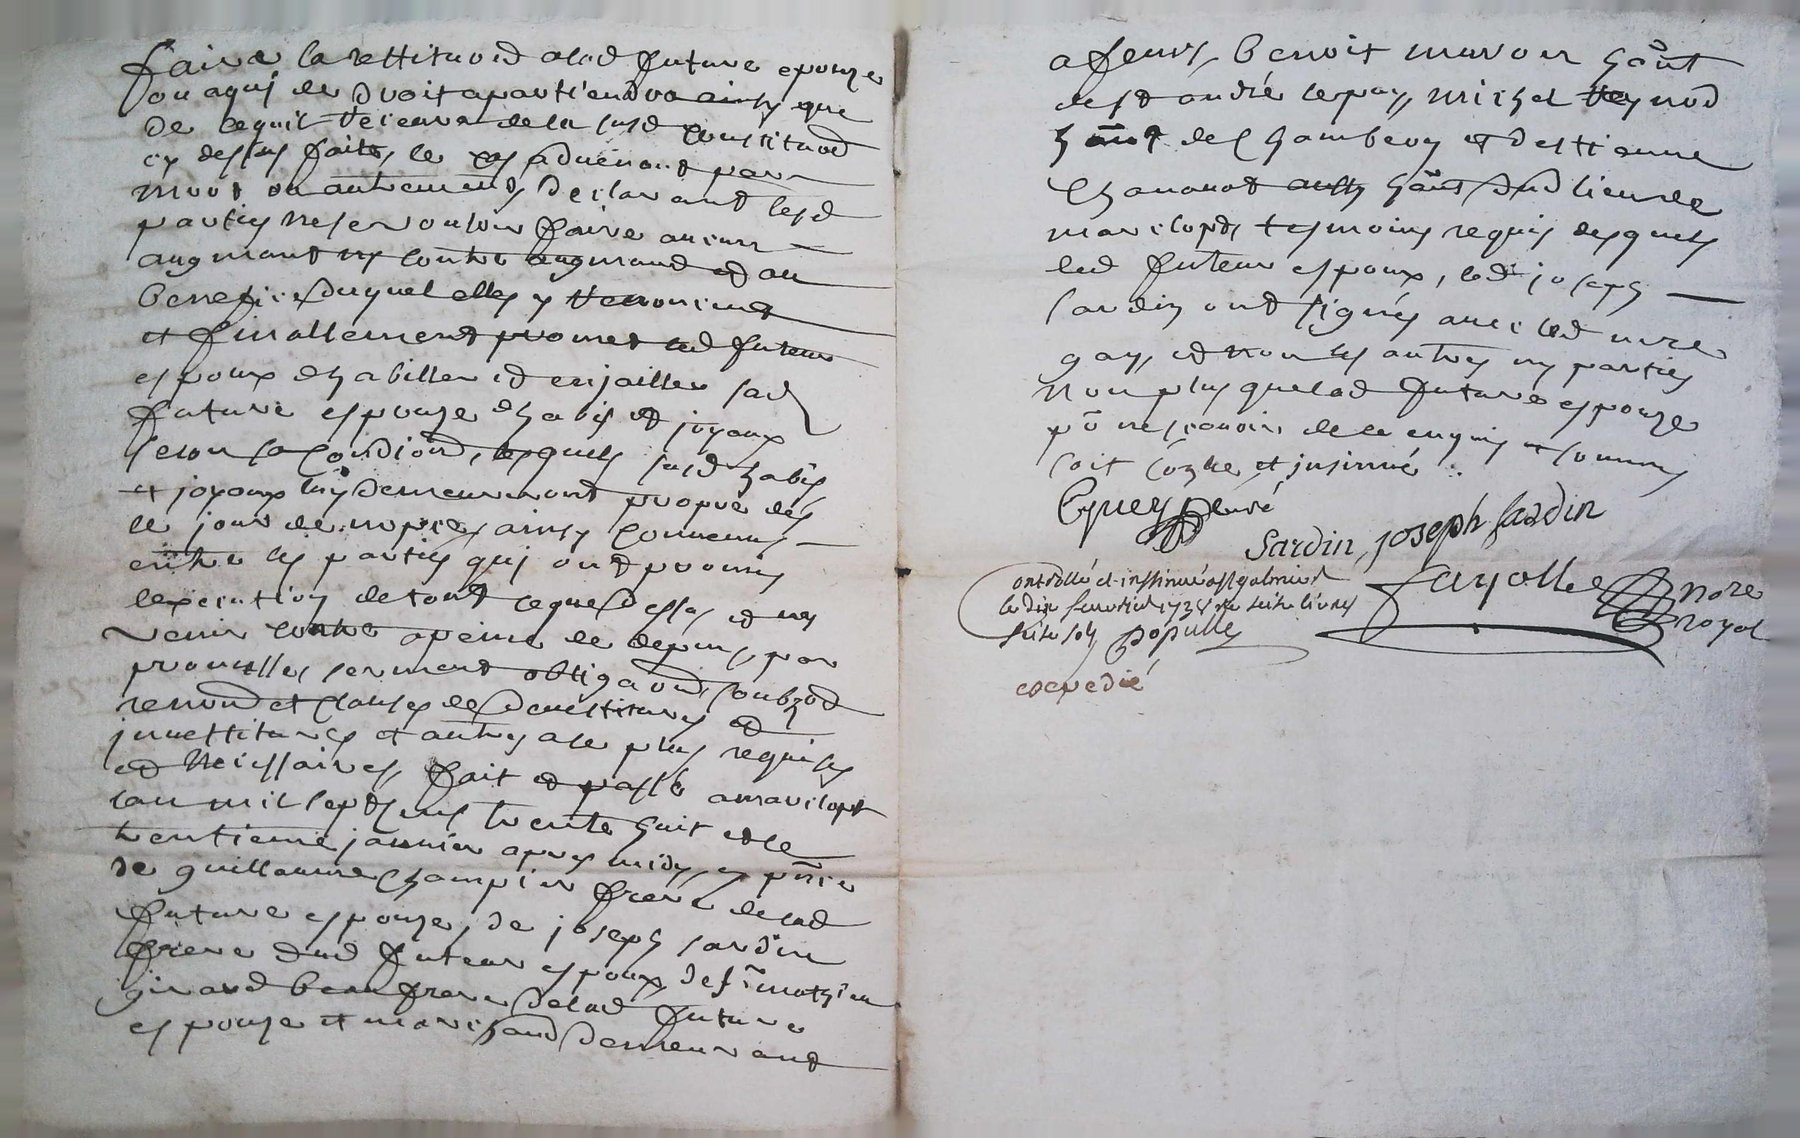 faire la restituōn alad future epouze
ou a quj de droit apartiendra ainsy que
de ce quil recevra de la susd constituōn
cy dessus faite, le cas advenant par
mort ou autrement, declarant lesd
parties ne se vouloir faire aucun
augmant ny contre augmand et au
benefice duquel elles y renoncent
et finallement promet led futeur
espoux dhabiller et enjailler sad
future espouze dhabis et joyaux
selon sa condiōn, lesquels susd habis
et joyaux luy demeureront propre dés
le jour de nopces, ainsy convenus
entre les parties quj ont promis
lexecution de tout ce que dessus et ny
venir contre a peine de depens, par
promesses serment obligaōns, soubzōn
renonōn et clauses de devestitures et
jnvestitures et autres a ce plus requises
et neicessaires, fait et passé a mavilopt
lan mil sept cens trente huit et le
trentieme janvier apres midy, en pn̄ce
de guillaume Champier frere de lad
future espouze, de joseph sardin
frere dud futeur espoux, de sr̄ mathieu
girard beau frere de lad future
espouze et marchand demeurant
a feurs, benoit marou hānt
de st andré le puy, michel reynod
hānt de Chambeon et destienne
Chavanot hānt dud lieu de
marclopt, tesmoins requis desquels
led futeur espoux, led joseph
sardin ont signés avec led mre
gay, et non les autres ny parties
non plus que lad future espouze
pō ne scavoir de ce enquis et sommés
soit cōzlle et jnsinué
Sardin, joseph sardin
ontrollé et inssinué a st galmier
le dix fevrier 1738 Re huit livres
huit sols populle
fayolle nore
royal
expedié